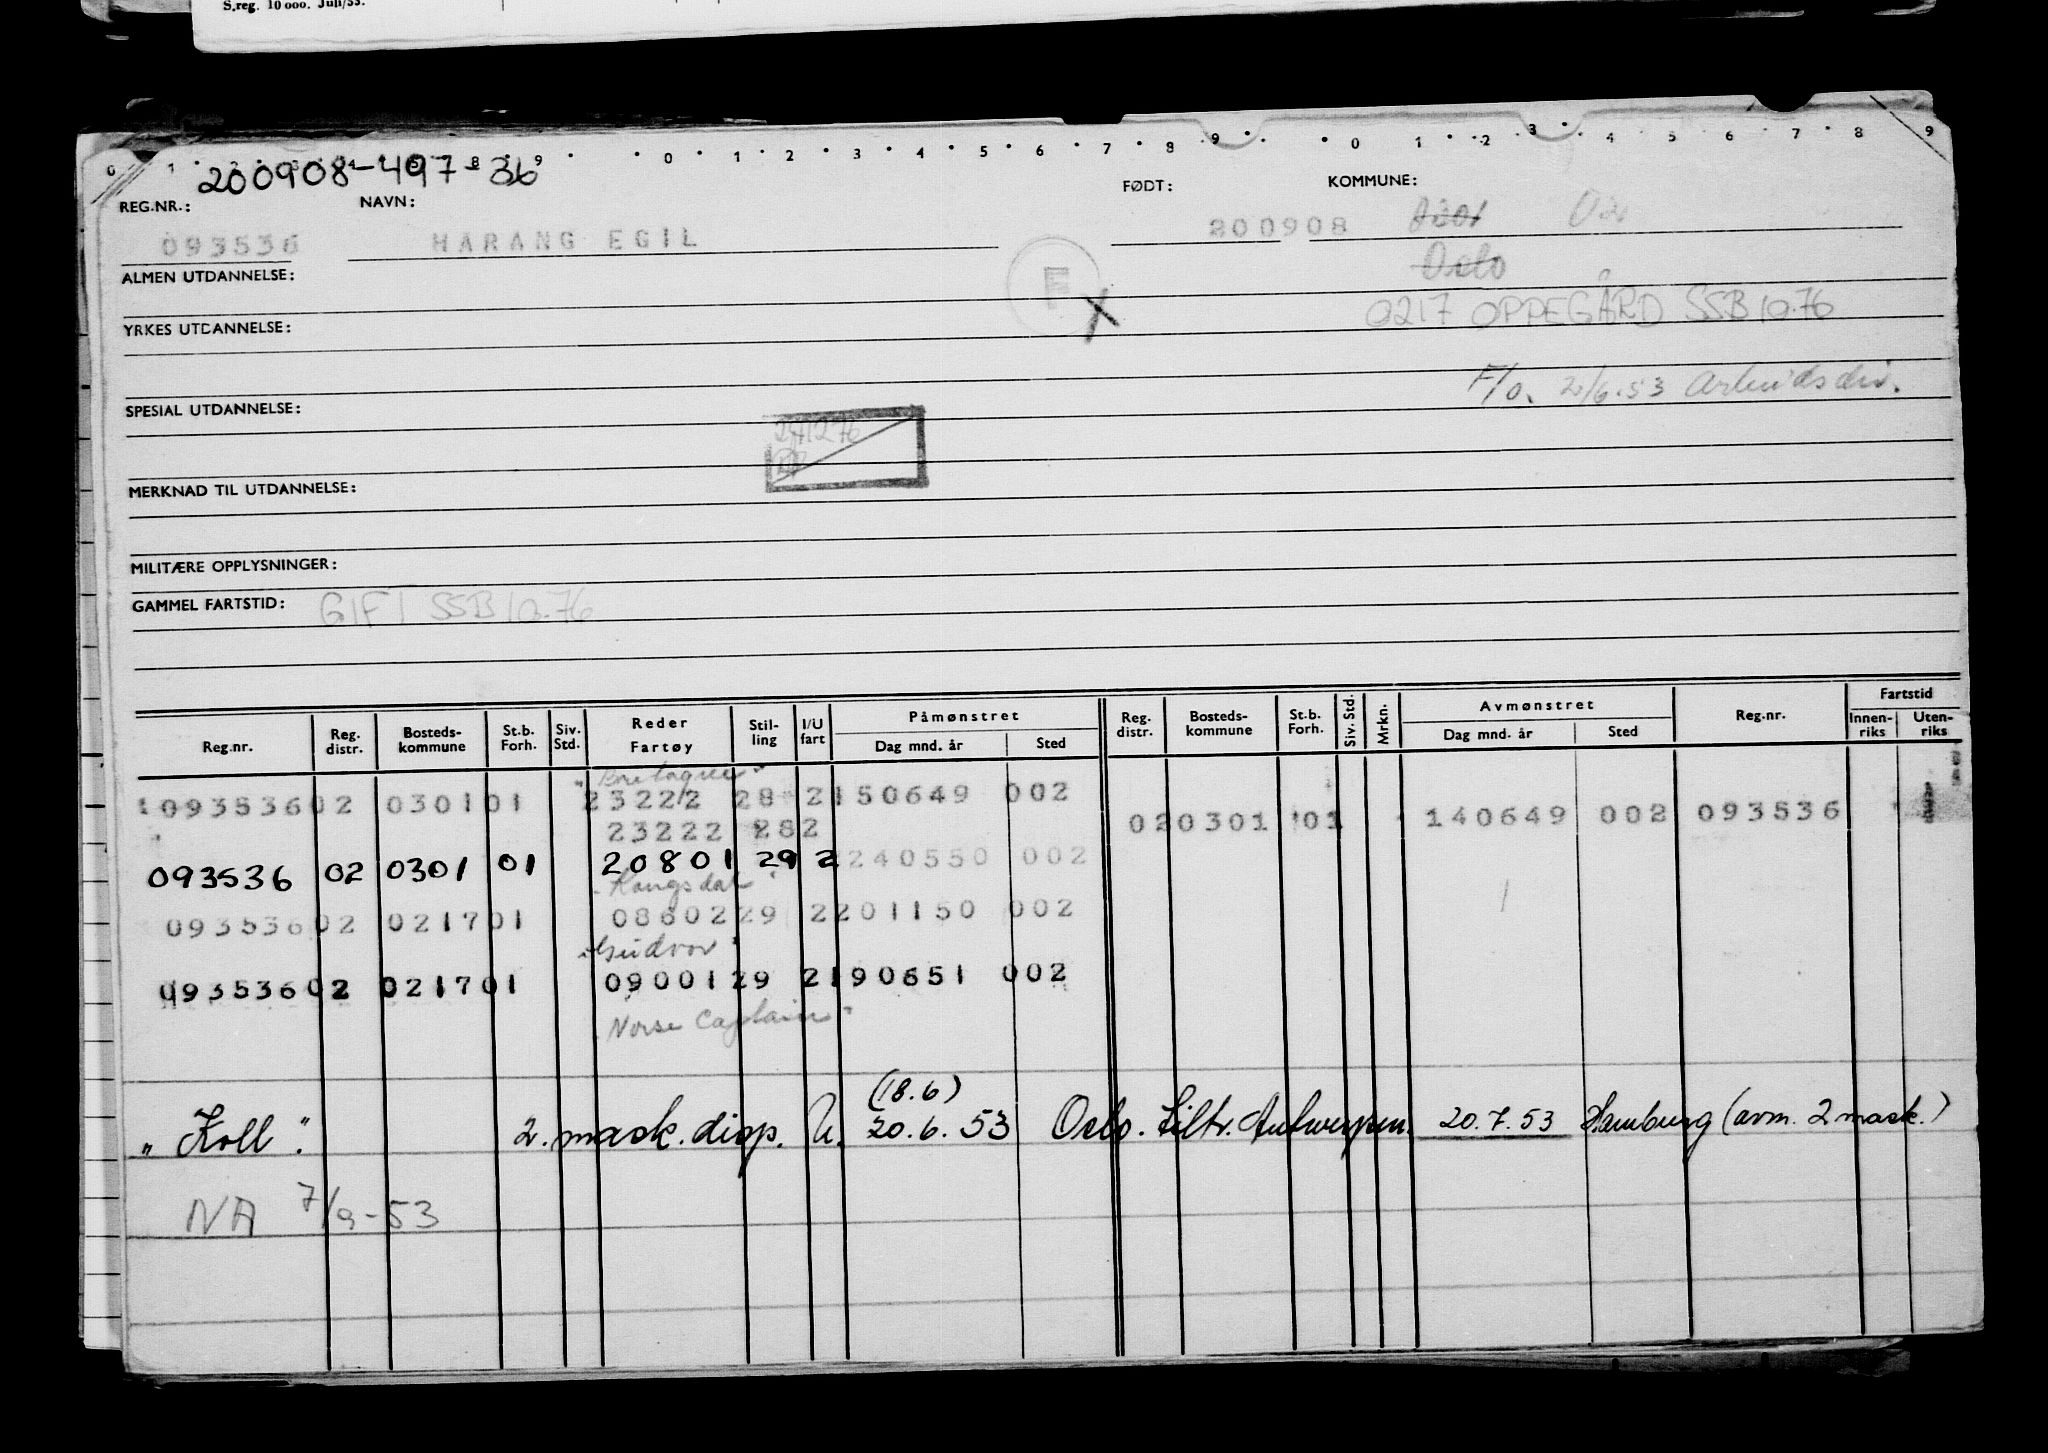 S.reg. 10 000. Juli/53.
0 1 2 3 4 5 6 7 8 9 0 1 2 3 4 5 6 7 8 9 0 1 2 3 4 5 6 7 8 9
200908-497-36
REG.NR.: NAVN: FØDT: KOMMUNE:
093536 HARANG EGIL 200908 0301 02
Oslo
ALMEN UTDANNELSE: F X
0217 OPPEGÅRD SSB 10.76
YRKES UTDANNELSE:
F/o. 2/6.53 Arbeidsdir.
SPESIAL UTDANNELSE:
MERKNAD TIL UTDANNELSE:
MILITÆRE OPPLYSNINGER:
GAMMEL FARTSTID: GIFT SSB 10.76
Reg.nr. Reg. distr. Bosteds-kommune St.b. Forh. Siv. Std. Reder Fartøy Stil-ling I/U fart Påmønstret Dag mnd. år Sted Reg. distr. Bosteds-kommune St.b. Forh. Siv. Std. Mrkn. Avmønstret Dag mnd. år Sted Reg.nr. Fartstid Innen-riks Uten-riks
"Bretagne"
093536 02 0301 01 23222 28 2 150649 002
23222 28 2 02 0301 01 140649 002 093536
093536 02 0301 01 20801 29 2 240550 002
"Kongsdal"
093536 02 0217 01 08602 29 2 201150 002
"Gudvor"
093536 02 0217 01 09001 29 2 190651 002
"Norse Captain"
(18.6)
"Koll". 2. mask. disp. U. 20.6.53 Oslo. Tiltr. Antwerpen. 20.7.53 Hamburg (avm. 2 mask.)
NA 7/9-53